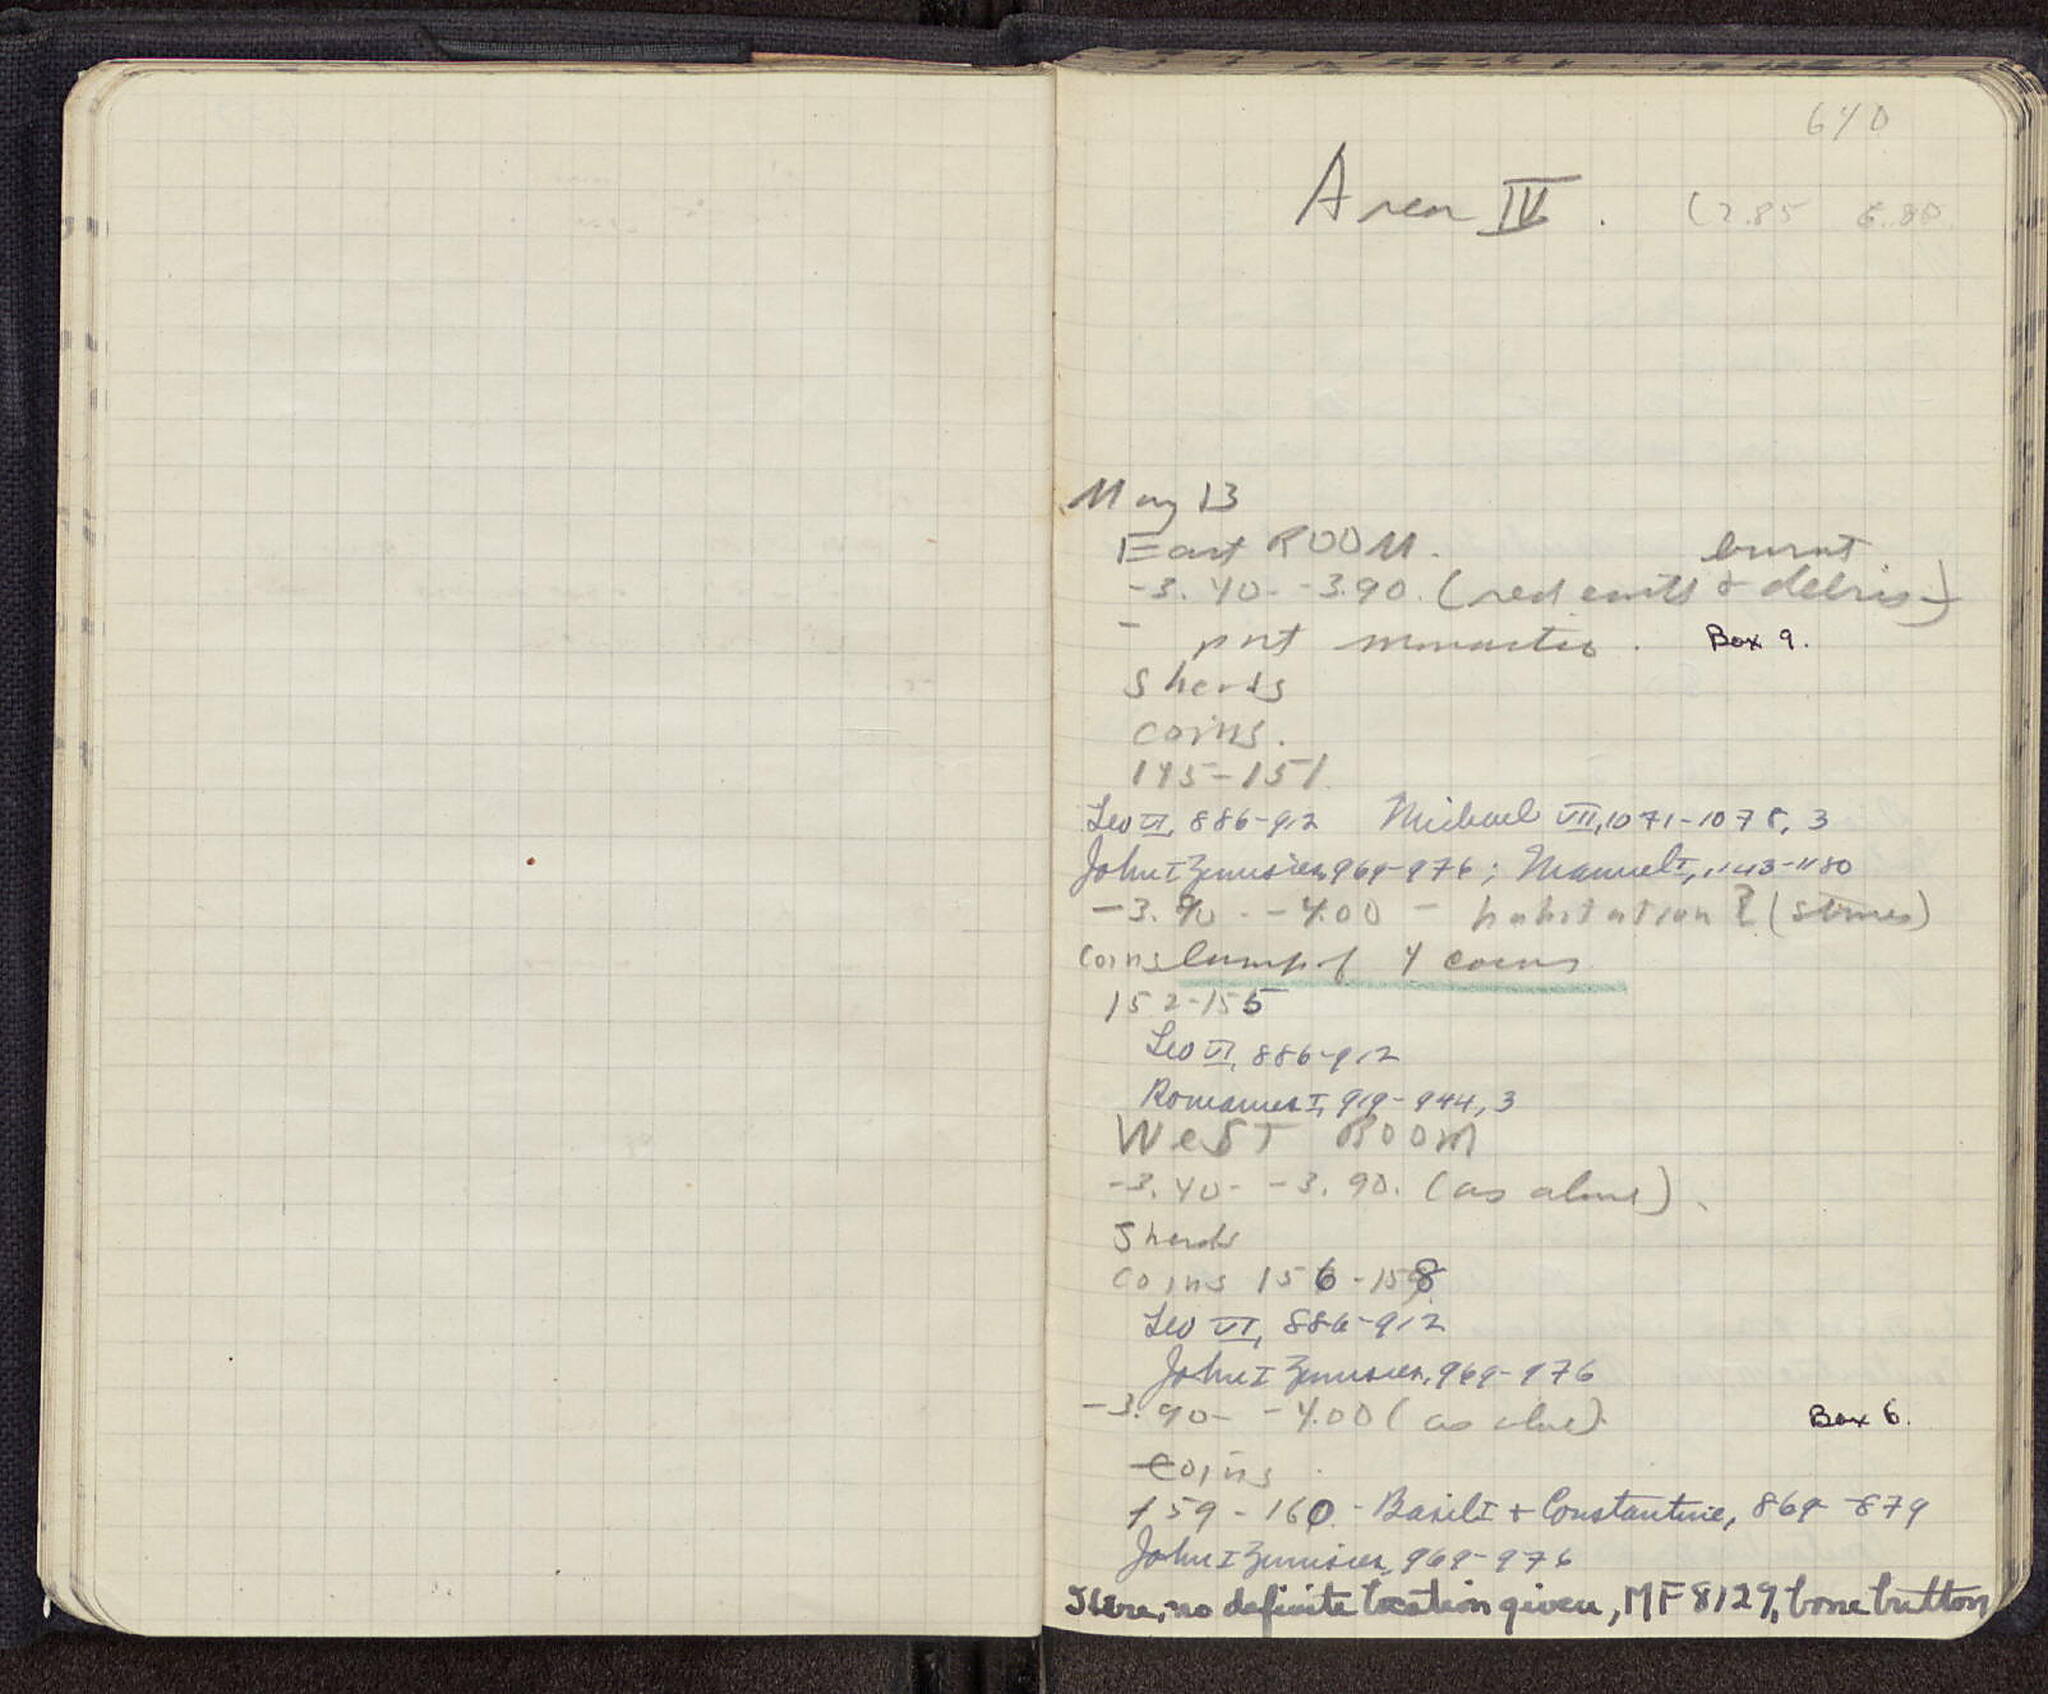 640
Area IV. (2.85 6.80
May 13
East ROOM. burnt
-3.40 - -3.90. (red earth & debris)
- Box 9.
Sherds
coins.
145-151
Leo VI, 886-912 Michael VII, 1071-1078, 3
John I Zimisces, 969-976; Manuel I, 1143-1180
-3.90 - -4.00 - habitation? (stones)
coins lump of 4 coins
152-155
Leo VI, 886-912
Romanus I, 919-944, 3
WEST ROOM
-3.40 - -3.90. (as above).
Sherds
coins 156-158
Leo VI, 886-912
John I Zimisces, 969-976
-3.90 - -4.00 (as above). Box 6.
Coins
159-160 - Basil I + Constantine, 869-879
John I Zimisces, 969-976
Here, no definite location given, MF 8129, bone button